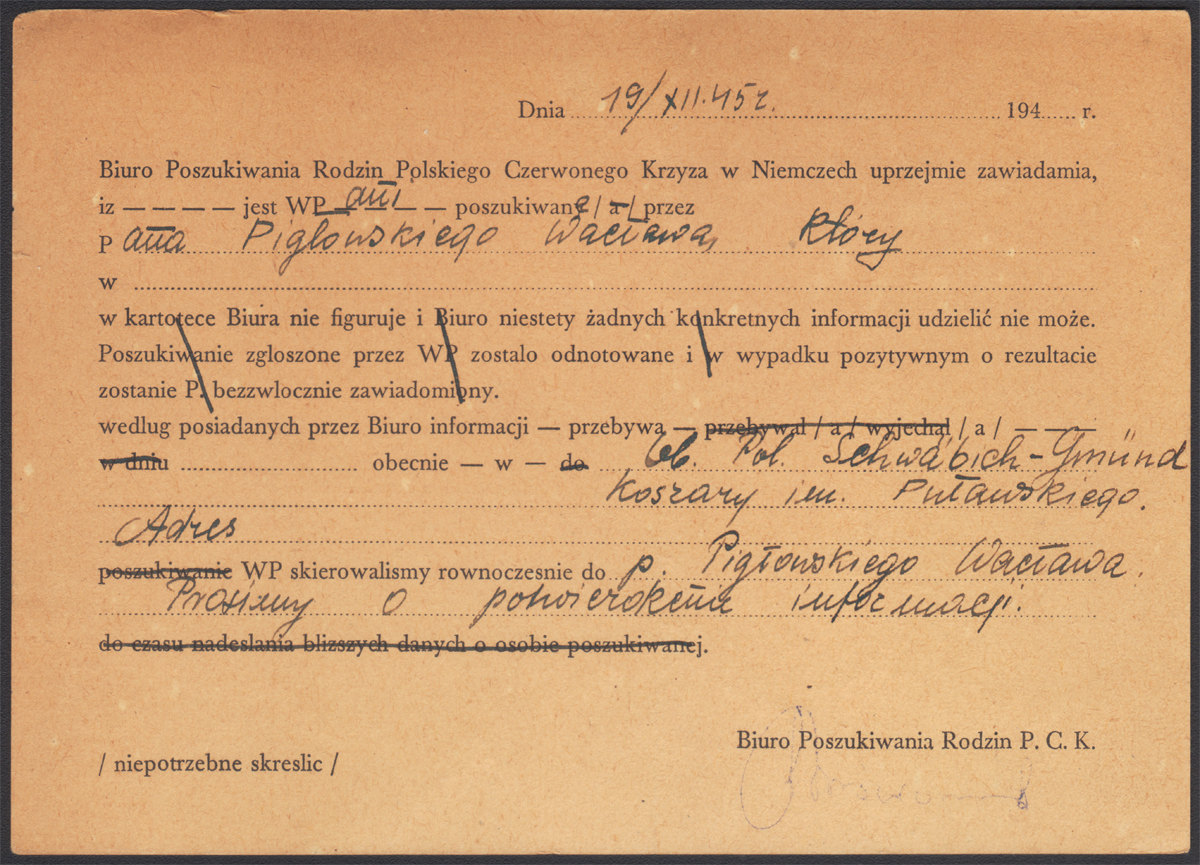 Dnia 19/XII.45r. 194 r.
Biuro Poszukiwania Rodzin Polskiego Czerwonego Krzyza w Niemczech uprzejmie zawiadamia,
iz — — — — jest WP ani — poszukiwane / a / przez
P ana Pigłowskiego Wacława, który
w
w kartotece Biura nie figuruje i Biuro niestety żadnych konkretnych informacji udzielić nie może.
Poszukiwanie zgloszone przez WP zostalo odnotowane i w wypadku pozytywnym o rezultacie
zostanie P. bezzwlocznie zawiadomiony.
wedlug posiadanych przez Biuro informacji — przebywa — przebywal / a / wyjechal / a / — — —
w dniu obecnie — w — do Ob. Pol. Schwäbich-Gmünd
Koszary im. Pułaskiego.
Adres
poszukiwanie WP skierowalismy rownoczesnie do p. Pigłowskiego Wacława.
Prosimy o potwierdzenie informacji.
do czasu nadeslania blizszych danych o osobie poszukiwanej.
Biuro Poszukiwania Rodzin P. C. K.
/ niepotrzebne skreslic /